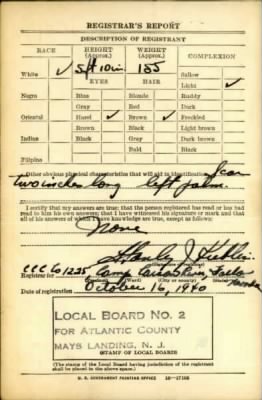 REGISTRAR'S REPORT
DESCRIPTION OF REGISTRANT
RACE HEIGHT (Approx.) WEIGHT (Approx.) COMPLEXION
White ✓ 5 ft 10 in. 155 Sallow
EYES HAIR Light ✓
Negro Blue Blonde Ruddy
Gray Red Dark
Oriental Hazel ✓ Brown ✓ Freckled
Brown Black Light brown
Indian Black Gray Dark brown
Bald Black
Filipino
Other obvious physical characteristics that will aid in identification Scar
two inches long left palm.
I certify that my answers are true; that the person registered has read or has had
read to him his own answers; that I have witnessed his signature or mark and that
all of his answers of which I have knowledge are true, except as follows:
None
Stanley J.
Registrar for CCC Co 1225 Camp Carson River, Fallon
Nevada
Date of registration October 16, 1940
LOCAL BOARD No. 2
FOR ATLANTIC COUNTY
MAYS LANDING, N. J.
(STAMP OF LOCAL BOARD)
(The stamp of the Local Board having jurisdiction of the registrant
shall be placed in the above space.)
U. S. GOVERNMENT PRINTING OFFICE 16—17105